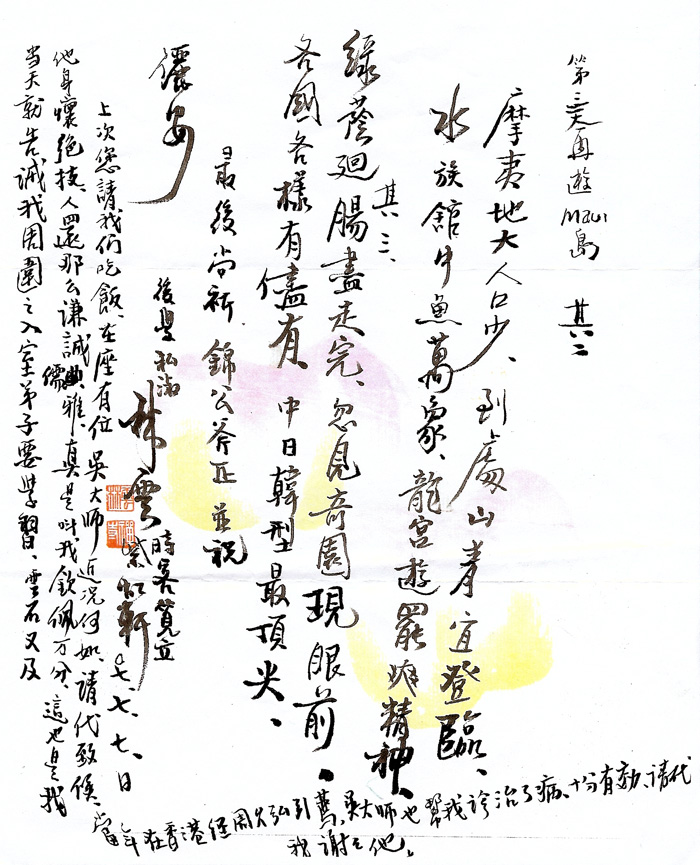 第三天再遊Maui島 其二
摩夷地大人口少、到處山青宜登臨、
水族舘中魚萬象、龍宮遊罷爽精神、
其三、
綠蔭廻腸盡走完、忽見奇園現眼前、
各國各樣有儘有、中日韓型最頂尖、
最後尚祈 錦公斧正並祝
儷安
後學私淑 林雲 時客筧立 紫虹軒 七、七、七、日
上次您請我們吃飯、在座有位吳大師近況何如、請代致候、
他身懷絕技人還那么謙誠儒雅、真是叫我欽佩万分、這也是我
當天就告誡我周圍之入室弟子要學習、雲石又及
當年在香港經周 弘引薦、吳大師也幫我診治了病、十分有効、請代
我謝々他。